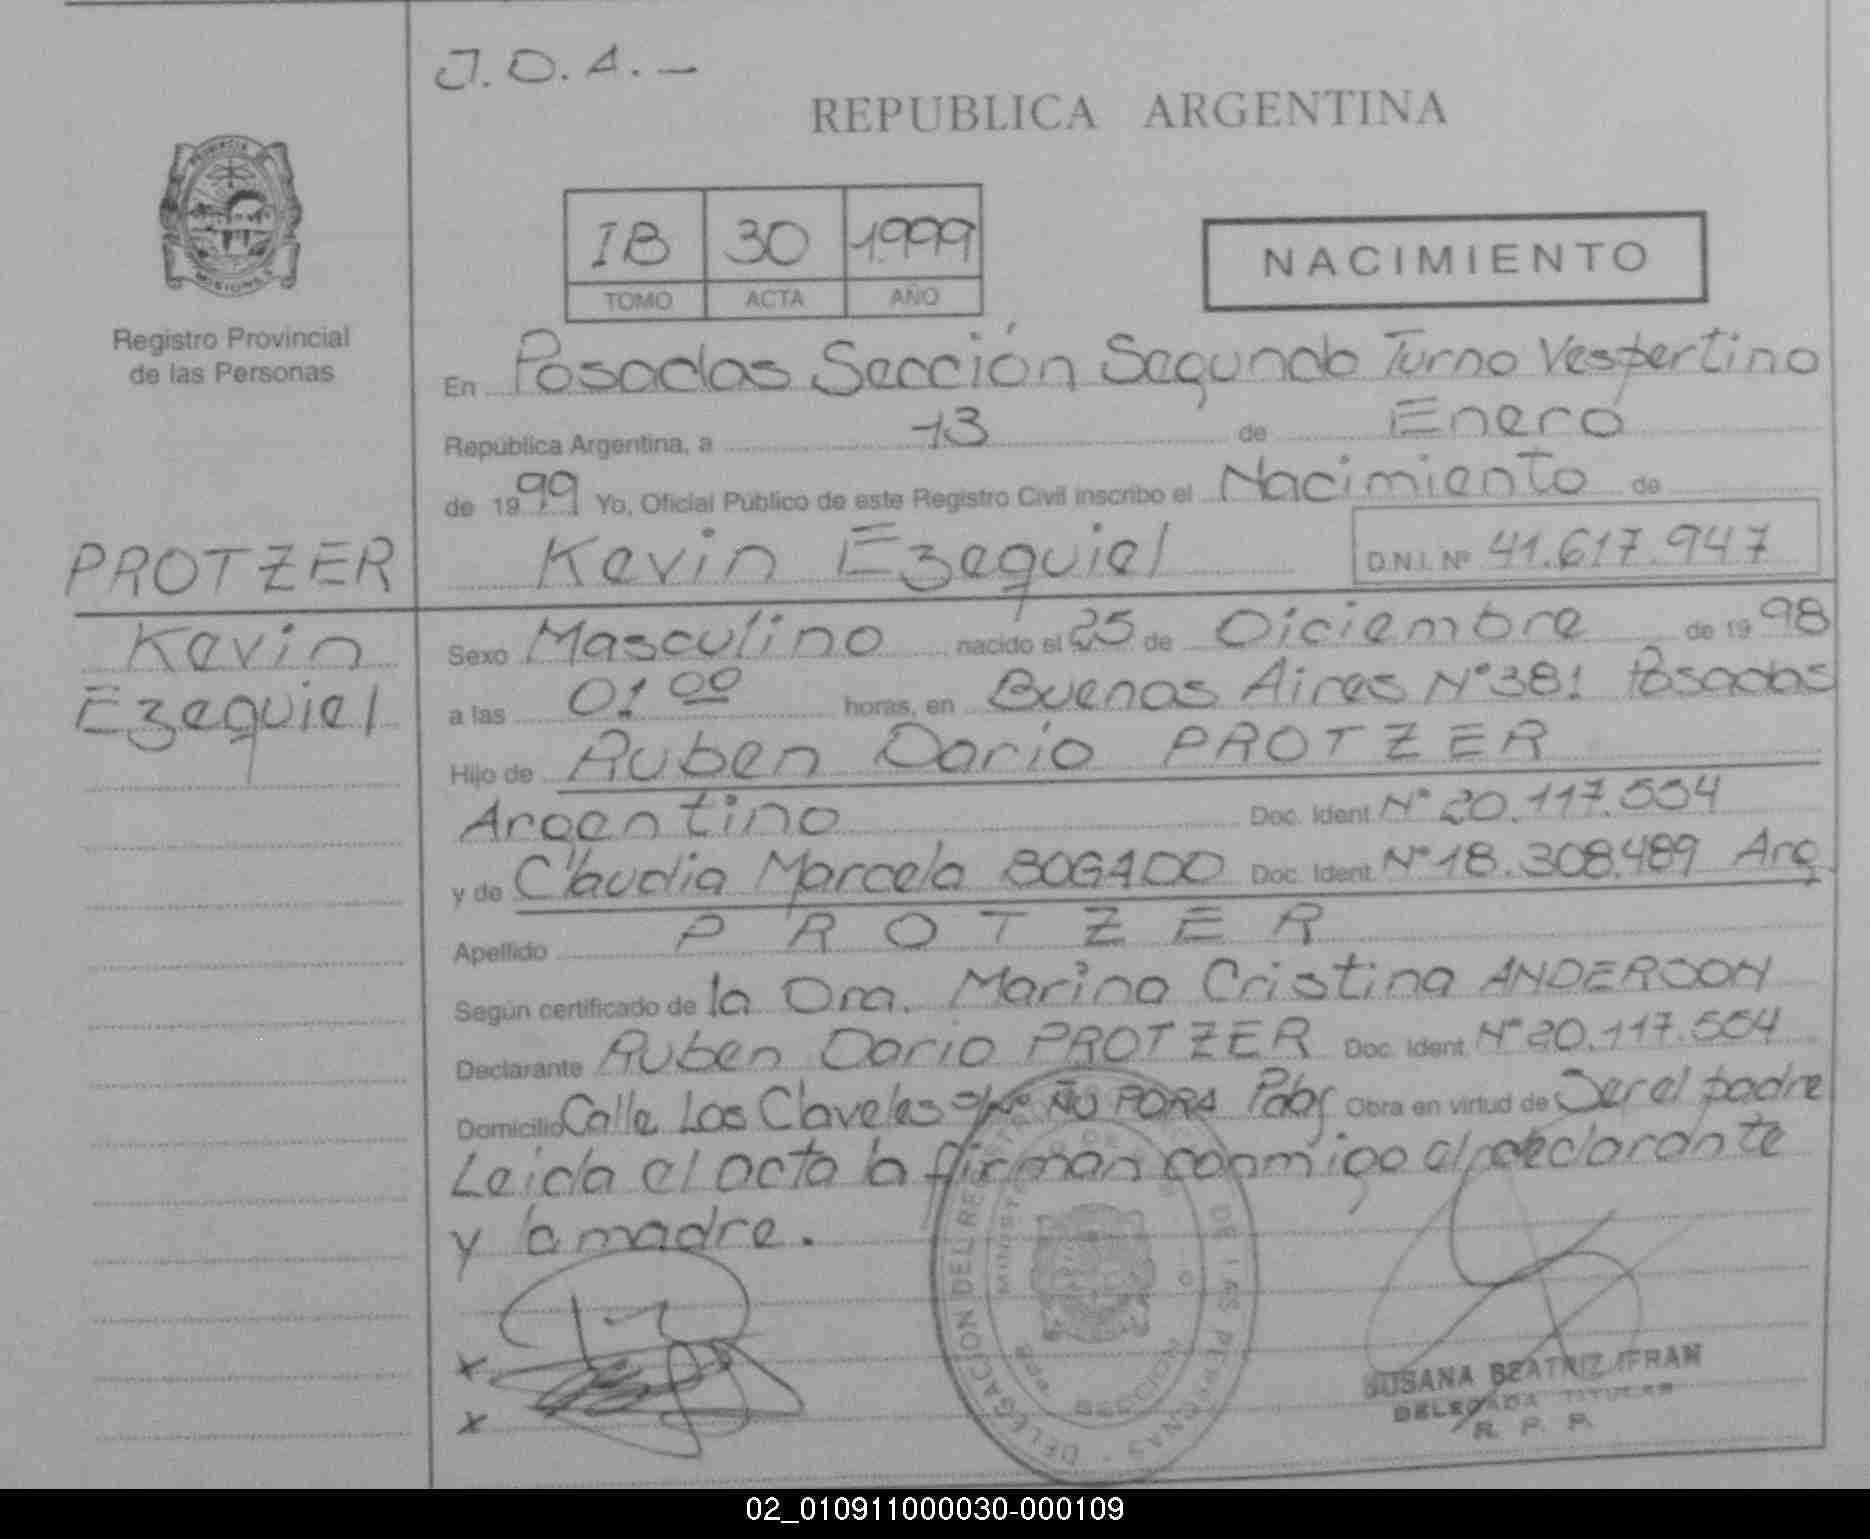 J.D.A.-
REPUBLICA ARGENTINA
PROVINCIA
MISIONES
Registro Provincial
de las Personas
IB 30 1.999
TOMO ACTA AÑO
NACIMIENTO
En Posadas Sección Segunda Turno Vespertino
República Argentina, a 13 de Enero
de 1999 Yo, Oficial Público de este Registro Civil inscribo el Nacimiento de
Kevin Ezequiel D.N.I. Nº 41.617.947
PROTZER
Kevin
Ezequiel
Sexo Masculino nacido el 25 de Diciembre de 1998
a las 01:00 horas, en Buenos Aires Nº 381 Posadas
Hijo de Ruben Dario PROTZER
Argentino Doc. Ident. Nº 20.117.554
y de Claudia Marcela BOGADO Doc. Ident. Nº 18.308.489 Arg
Apellido PROTZER
Según certificado de la Dra. Marina Cristina ANDERSON
Declarante Ruben Dario PROTZER Doc. Ident. Nº 20.117.554
Domicilio Calle Los Claveles s/nº ÑU PORA Pdas Obra en virtud de Ser el padre
Leida el acta la firman conmigo el declarante
y la madre.
x
x
DELEGACION DEL REGISTRO DE LAS PERSONAS
SUSANA BEATRIZ IFRAN
DELEGADA TITULAR
R. P. P.
02_010911000030-000109